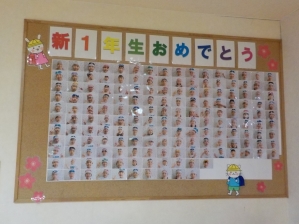 新1年生おめでとう